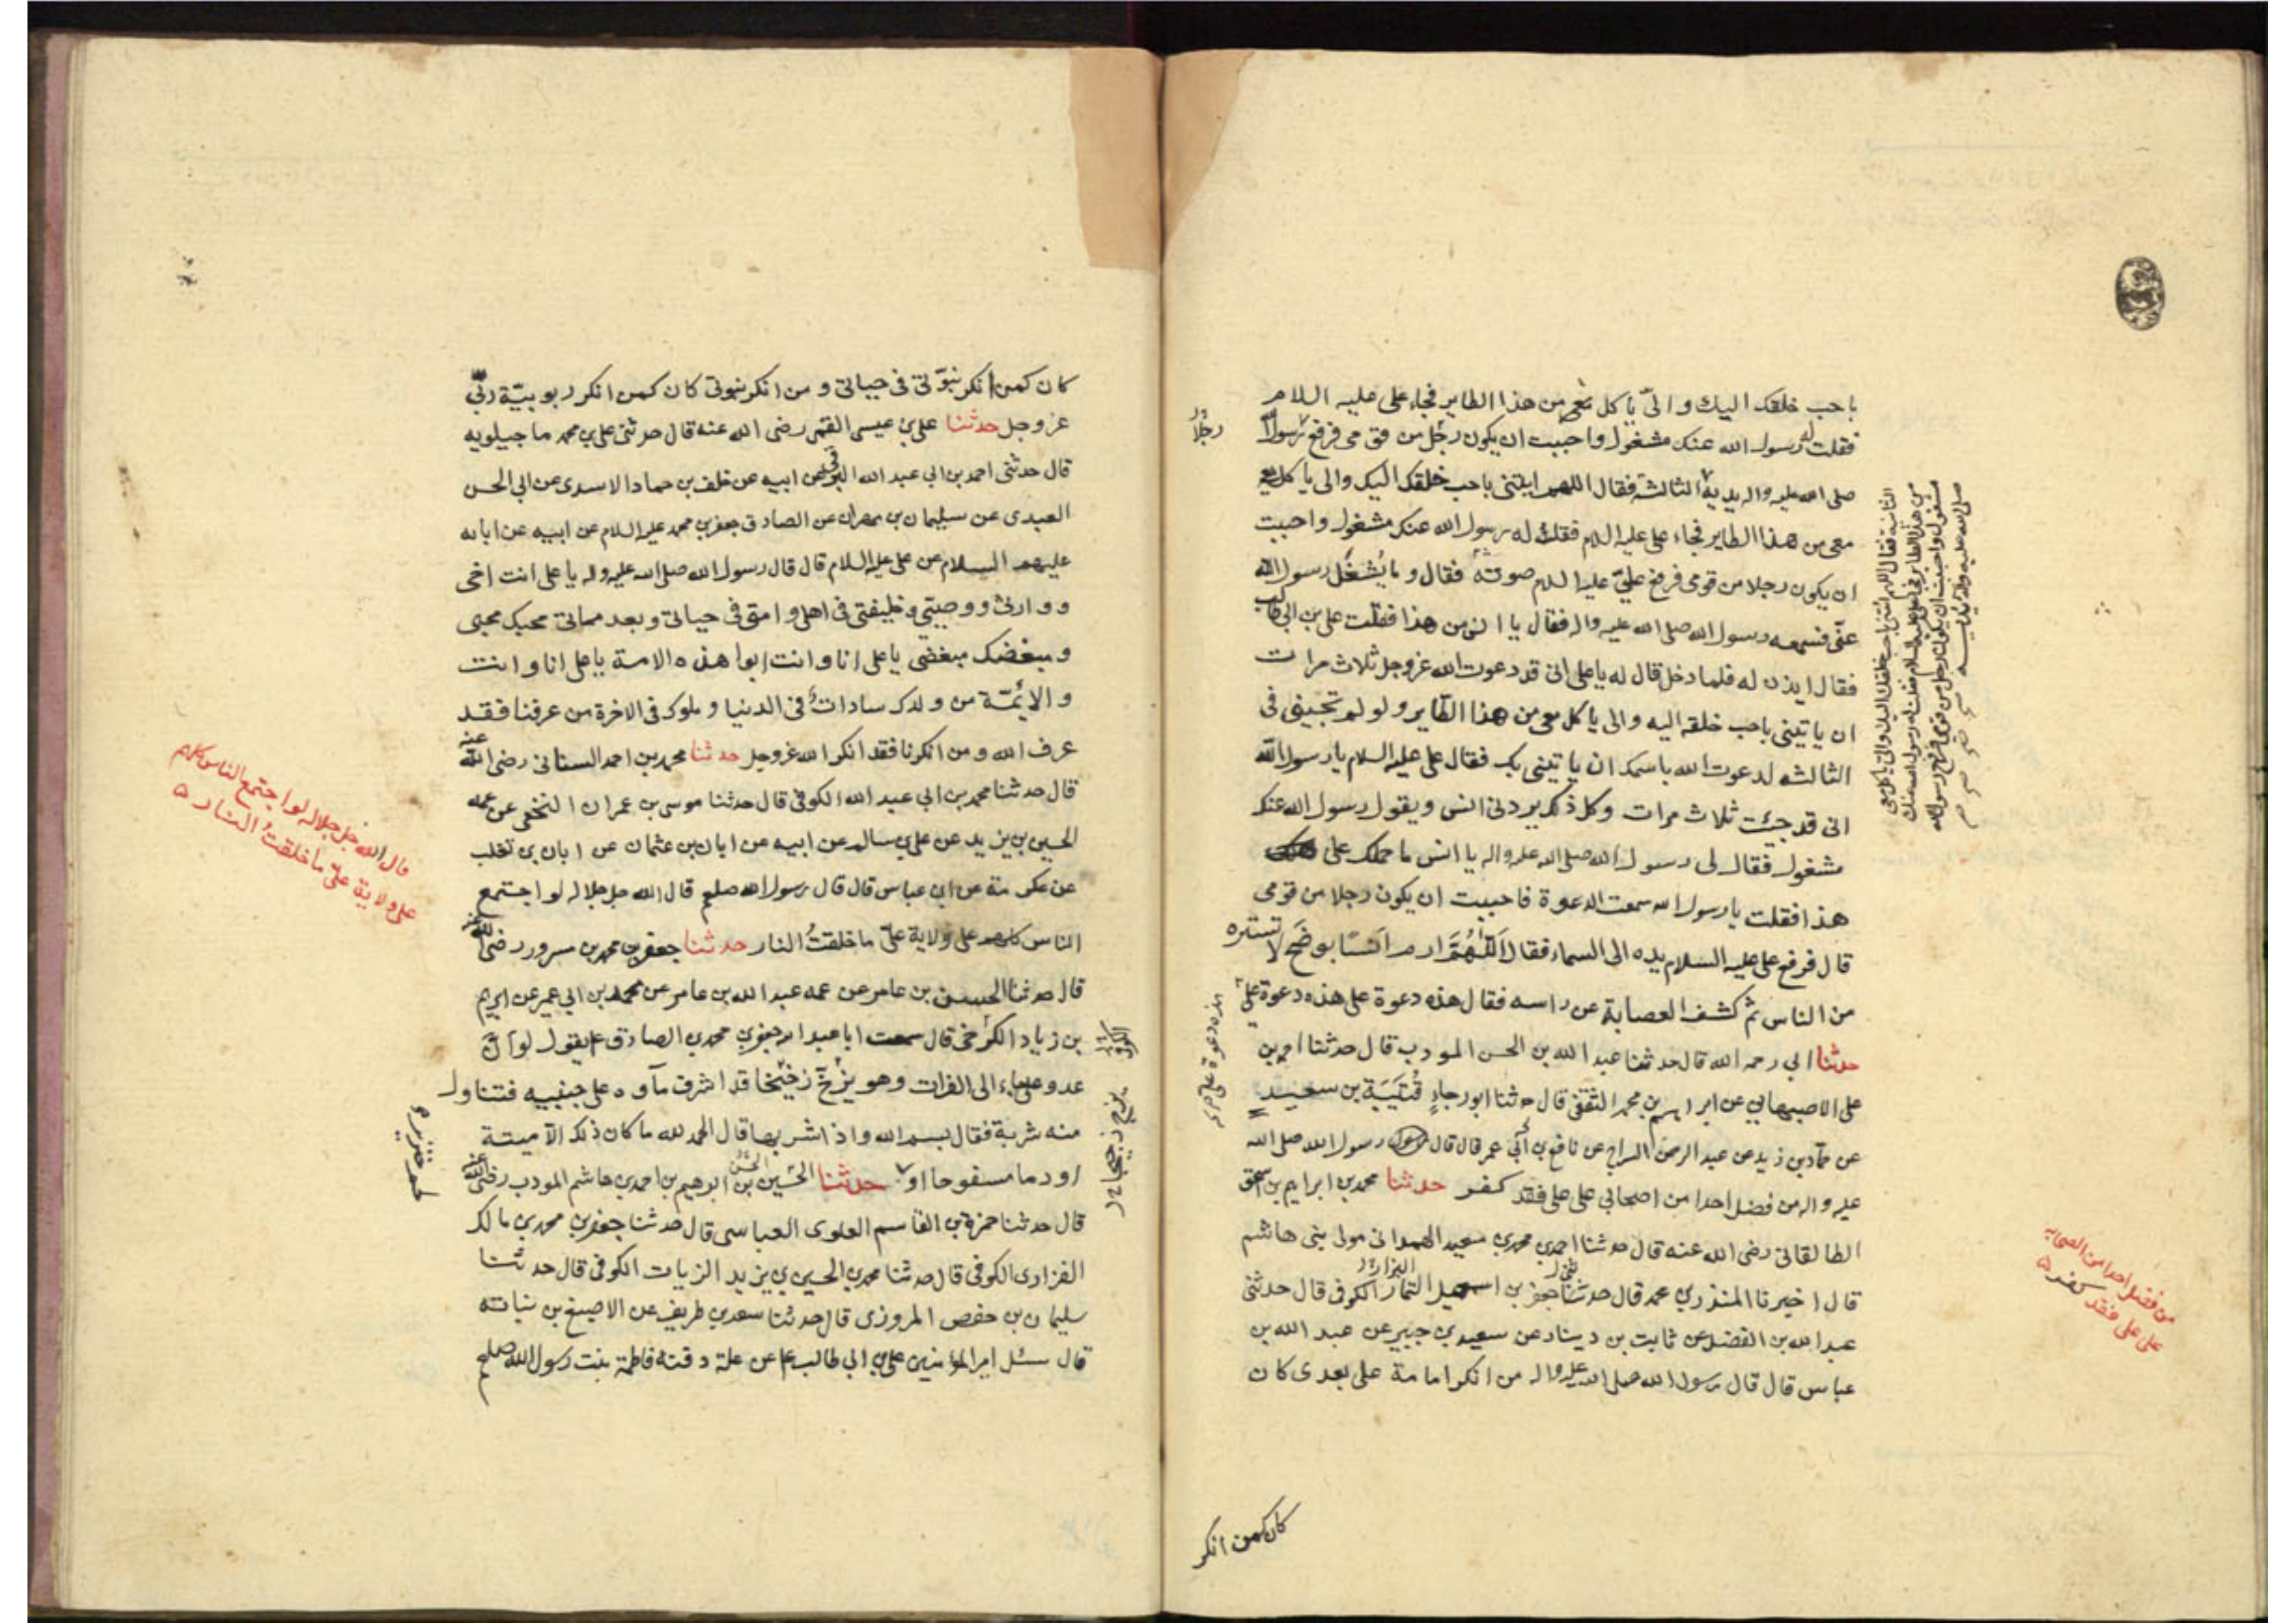 باحب خلقك اليك والىّ ياكل معى من هذا الطاير فجاء على عليه السلام
فقلت له رسول الله عنك مشغول واحببت ان يكون رجل من قومى فرفع رسول الله
صلى الله عليه واله يديه الثالثة فقال اللهم ايتنى باحب خلقك اليك والى ياكل
معى من هذا الطاير فجاء على عليه السلام فقلت له رسول الله عنك مشغول واحببت
ان يكون رجلا من قومى فرفع علىّ عليه السلم صوته فقال وما يُشغل رسول الله
عنّى فسمعه رسول الله صلى الله عليه واله فقال يا انس من هذا فقلت على بن ابى طالب
فقال ايذن له فلما دخل قال له يا على انى قد دعوت الله عز وجل ثلاث مرات
ان ياتينى باحب خلقه اليه والى ياكل معى من هذا الطاير ولو لم تجيبنى فى
الثالثه لدعوت الله باسمك ان ياتينى بك فقال على عليه السلام يا رسول الله
انى قد جيت ثلاث مرات وكل ذلك يردنى انس ويقول رسول الله عنك
مشغول فقال لى رسول الله صلى الله عليه واله يا انس ما حملك على
هذا فقلت يا رسول الله سمعت الدعوة فاحببت ان يكون رجلا من قومى
قال فرفع على عليه السلام يده الى السماء فقال اللّهُمَّ ارم انسًا بوضَح لا تستره
من الناس ثم كشف العصابة عن راسه فقال هذه دعوة على هذه دعوة علىّ
حدثنا ابي رحمه الله قال حدثنا عبد الله بن الحسن المودب قال حدثنا احمد بن
على الاصبهاني عن ابراهيم بن محمد الثقفى قال حدثنا ابو رجاءٍ قُتَيبَة بن سعيد
عن حمّاد بن زيد عن عبد الرحمن السراج عن نافع بن أبي عمر قال قال رسول الله صلى الله
عليه واله من فضل احدا من اصحابي على على فقد كفر حدثنا محمد بن ابراهيم بن اسحق
الطالقانى رضى الله عنه قال حدثنا احمد بن محمد بن سعيد الهمدانى مولى بنى هاشم
قال اخبرنا المنذر بن محمد قال حدثنى جعفر بن اسمعيل التمار الكوفى قال حدثنى
البزاز
عبد الله بن الفضل عن ثابت بن دينار عن سعيد بن جبير عن عبد الله بن
عباس قال قال رسول الله صلى الله عليه واله من انكر امامة على بعدى كان
كان كمن انكر
رجلًا
الثانية فقال اللهم ائتنى باحب خلقك اليك والى ياكل معى
من هذا الطاير فجاء على عليه السلام فقلت له رسول الله عنك
مشغول واحببت ان يكون رجل من قومى فرفع رسول الله
صلى الله عليه واله يديه
هذه دعوة على
من فضل احدا من الصحابه
على على فقد كفر
كان كمن انكر نبوّتى فى حياتى و من انكر نبوتى كان كمن انكر ربوبيّة ربّى
عز وجل حدثنا على بن عيسى القمى رضى الله عنه قال حدثنى على بن محمد ماجيلويه
قال حدثنى احمد بن ابي عبد الله البرقى عن ابيه عن خلف بن حماد الاسدى عن ابي الحسن
العبدى عن سليمان بن مهران عن الصادق جعفر بن محمد عليه السلام عن ابيه عن ابائه
عليهم السلام عن على عليه السلام قال قال رسول الله صلى الله عليه واله يا على انت اخى
و وارثى ووصيتى وخليفتى فى اهلى وامتى فى حياتى وبعد مماتى محبك محبى
ومبغضك مبغضى يا على انا وانت ابوا هذه الامة يا على انا وانت
والايمّة من ولدك سادات فى الدنيا وملوك فى الاخرة من عرفنا فقد
عرف الله ومن انكرنا فقد انكر الله عز وجل حدثنا محمد بن احمد السنانى رضى الله عنه
قال حدثنا محمد بن ابي عبد الله الكوفى قال حدثنا موسى بن عمران النخعى عن عمه
الحسين بن يزيد عن على بن سالم عن ابيه عن ابان بن عثمان عن ابان بن تغلب
عن عكرمة عن ابن عباس قال قال رسول الله صلعم قال الله جل جلاله لو اجتمع
الناس كلهم على ولاية علىّ ما خلقتُ النار حدثنا جعفر بن محمد بن مسرور رضى الله عنه
قال حدثنا الحسين بن عامر عن عمه عبد الله بن عامر عن محمد بن ابي عمير عن ابراهيم
بن زياد الكرخى قال سمعت ابا عبد الله جعفر بن محمد بن الصادق ع يقول لو انّ
عدو على جاء الى الفرات وهو يزخّ زخيخا قد اشرف ماوه على جنبيه فتناول
منه شربة فقال بسم الله واذا شربها قال الحمد لله ما كان ذلك الا ميتة
او دما مسفوحا او حدثنا الحسين بن ابراهيم بن احمد بن هاشم المودب رضى الله عنه
قال حدثنا حمزة بن القاسم العلوى العباسى قال حدثنا جعفر بن محمد بن مالك
الفزارى الكوفى قال حدثنا محمد بن الحسين بن يزيد الزيات الكوفى قال حدثنا
سليمان بن حفص المروزى قال حدثنا سعد بن طريف عن الاصبغ بن نباته
قال سئل امير المؤمنين على بن ابي طالب ع عن علة دفنه فاطمة بنت رسول الله صلعم
قال الله جل جلاله لو اجتمع الناس كلهم
على ولاية علىّ ما خلقتُ النار
لحم خنزير